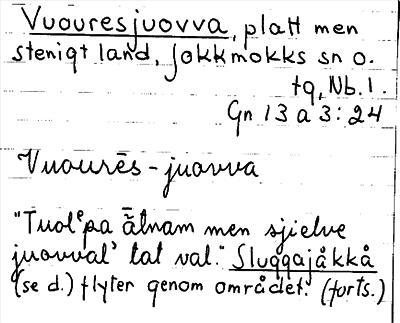 Vuouresjuovva, platt men
stenigt land, Jokkmokks sn o.
tg, Nb. l.
Gn 13 a 3: 24
Vuourēs-juovva
"Tuolᵉpa ätnam men sjielve
juovval' tat val." Sluggajåkkå
(se d.) flyter genom området. (forts.)